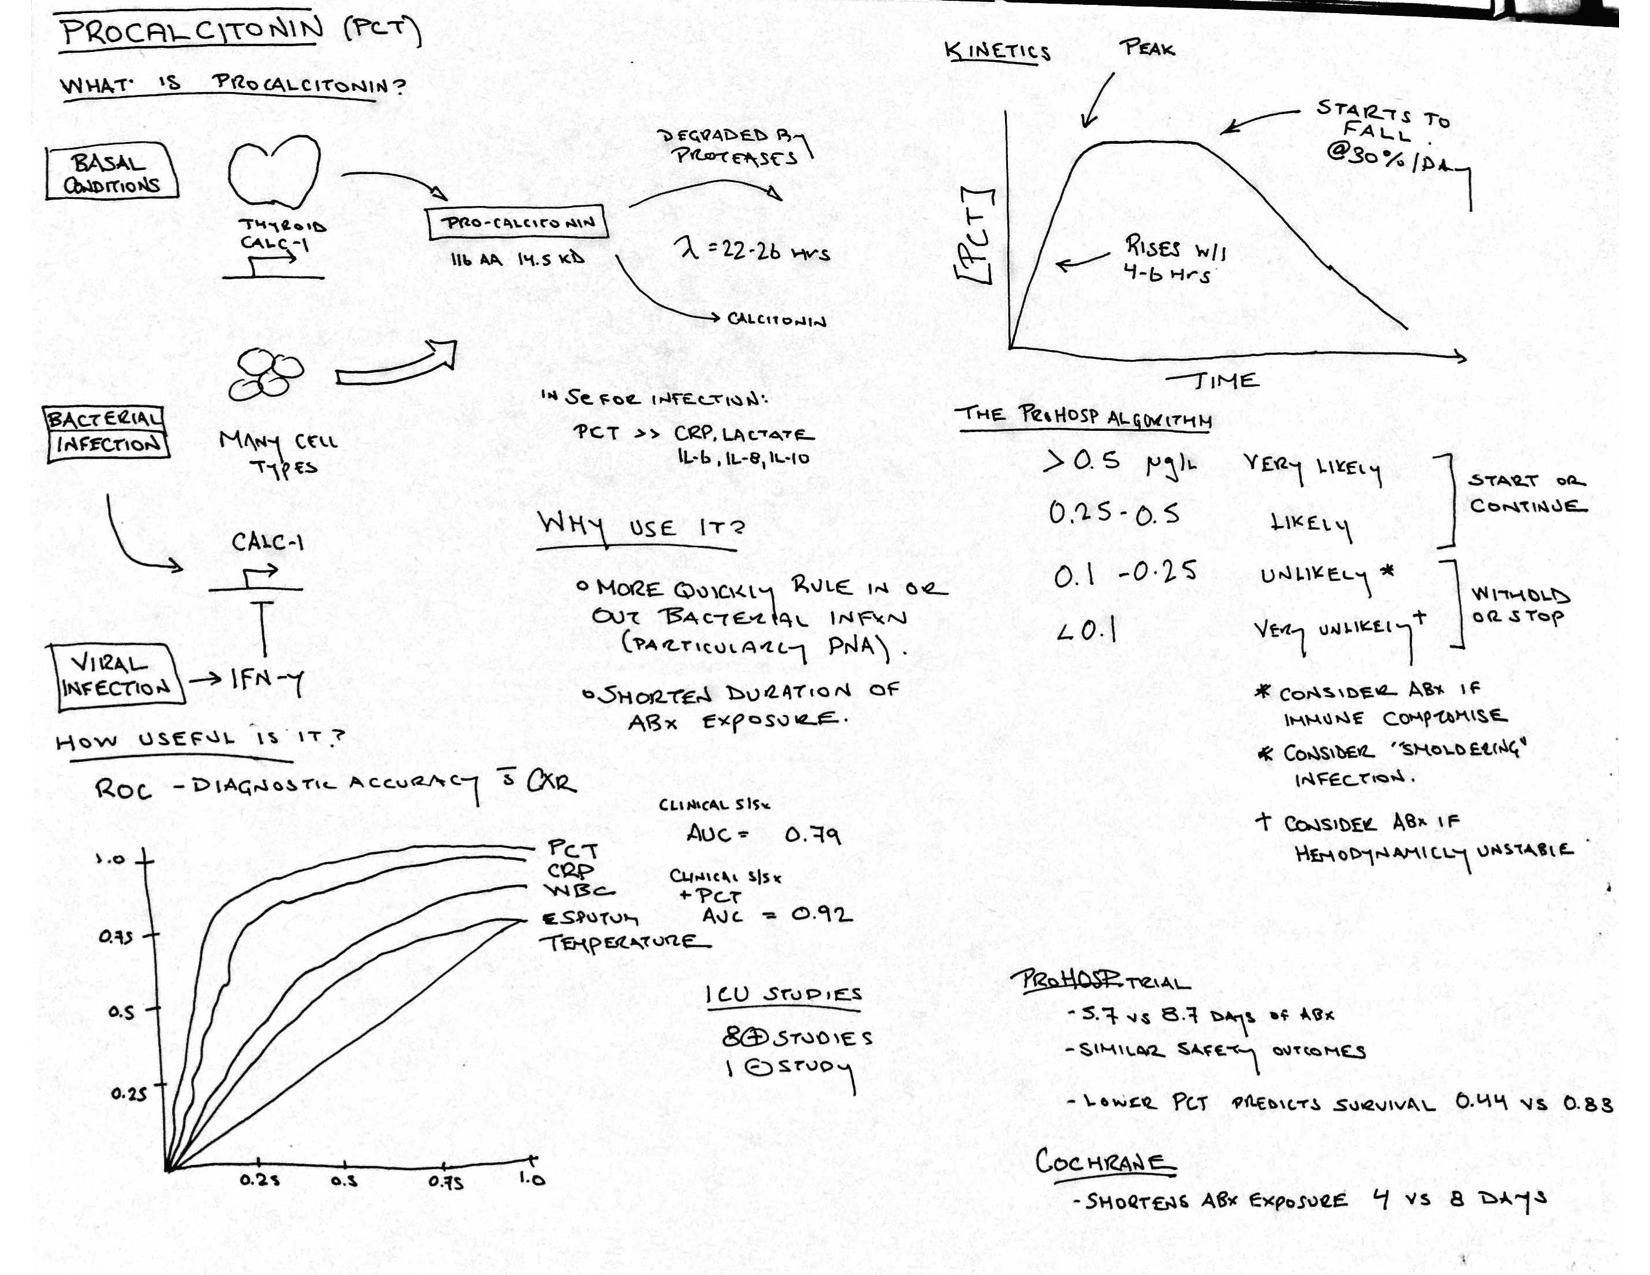 PROCALCITONIN (PCT)
WHAT IS PROCALCITONIN?
BASAL
CONDITIONS
THYROID
CALC-1
PRO-CALCITONIN
116 AA 14.5 KD
DEGRADED BY
PROTEASES
λ = 22-26 Hrs
CALCITONIN
BACTERIAL
INFECTION
MANY CELL
TYPES
CALC-1
VIRAL
INFECTION
IFN-γ
IN SE FOR INFECTION:
PCT >> CRP, LACTATE
IL-6, IL-8, IL-10
WHY USE IT?
○ MORE QUICKLY RULE IN OR
OUT BACTERIAL INFXN
(PARTICULARLY PNA).
○ SHORTEN DURATION OF
ABx EXPOSURE.
HOW USEFUL IS IT?
ROC - DIAGNOSTIC ACCURACY s̄ CXR
1.0
0.75
0.5
0.25
0.25
0.5
0.75
1.0
PCT
CRP
WBC
SPUTUM
TEMPERATURE
CLINICAL S/Sx
AUC = 0.79
CLINICAL S/Sx
+ PCT
AUC = 0.92
ICU STUDIES
8 ⊕ STUDIES
1 ⊖ STUDY
KINETICS
PEAK
STARTS TO
FALL
@30%/DAY
[PCT]
RISES W/I
4-6 Hrs
TIME
THE PROHOSP ALGORITHM
>0.5 μg/L VERY LIKELY
0.25-0.5 LIKELY
START OR
CONTINUE
0.1-0.25 UNLIKELY *
<0.1 VERY UNLIKELY †
WITHOLD
OR STOP
* CONSIDER ABx IF
IMMUNE COMPROMISE
* CONSIDER "SMOLDERING"
INFECTION.
† CONSIDER ABx IF
HEMODYNAMICLY UNSTABLE
PROHOSP TRIAL
- 5.7 vs 8.7 DAYS OF ABx
- SIMILAR SAFETY OUTCOMES
- LOWER PCT PREDICTS SURVIVAL 0.44 VS 0.83
COCHRANE
- SHORTENS ABx EXPOSURE 4 VS 8 DAYS